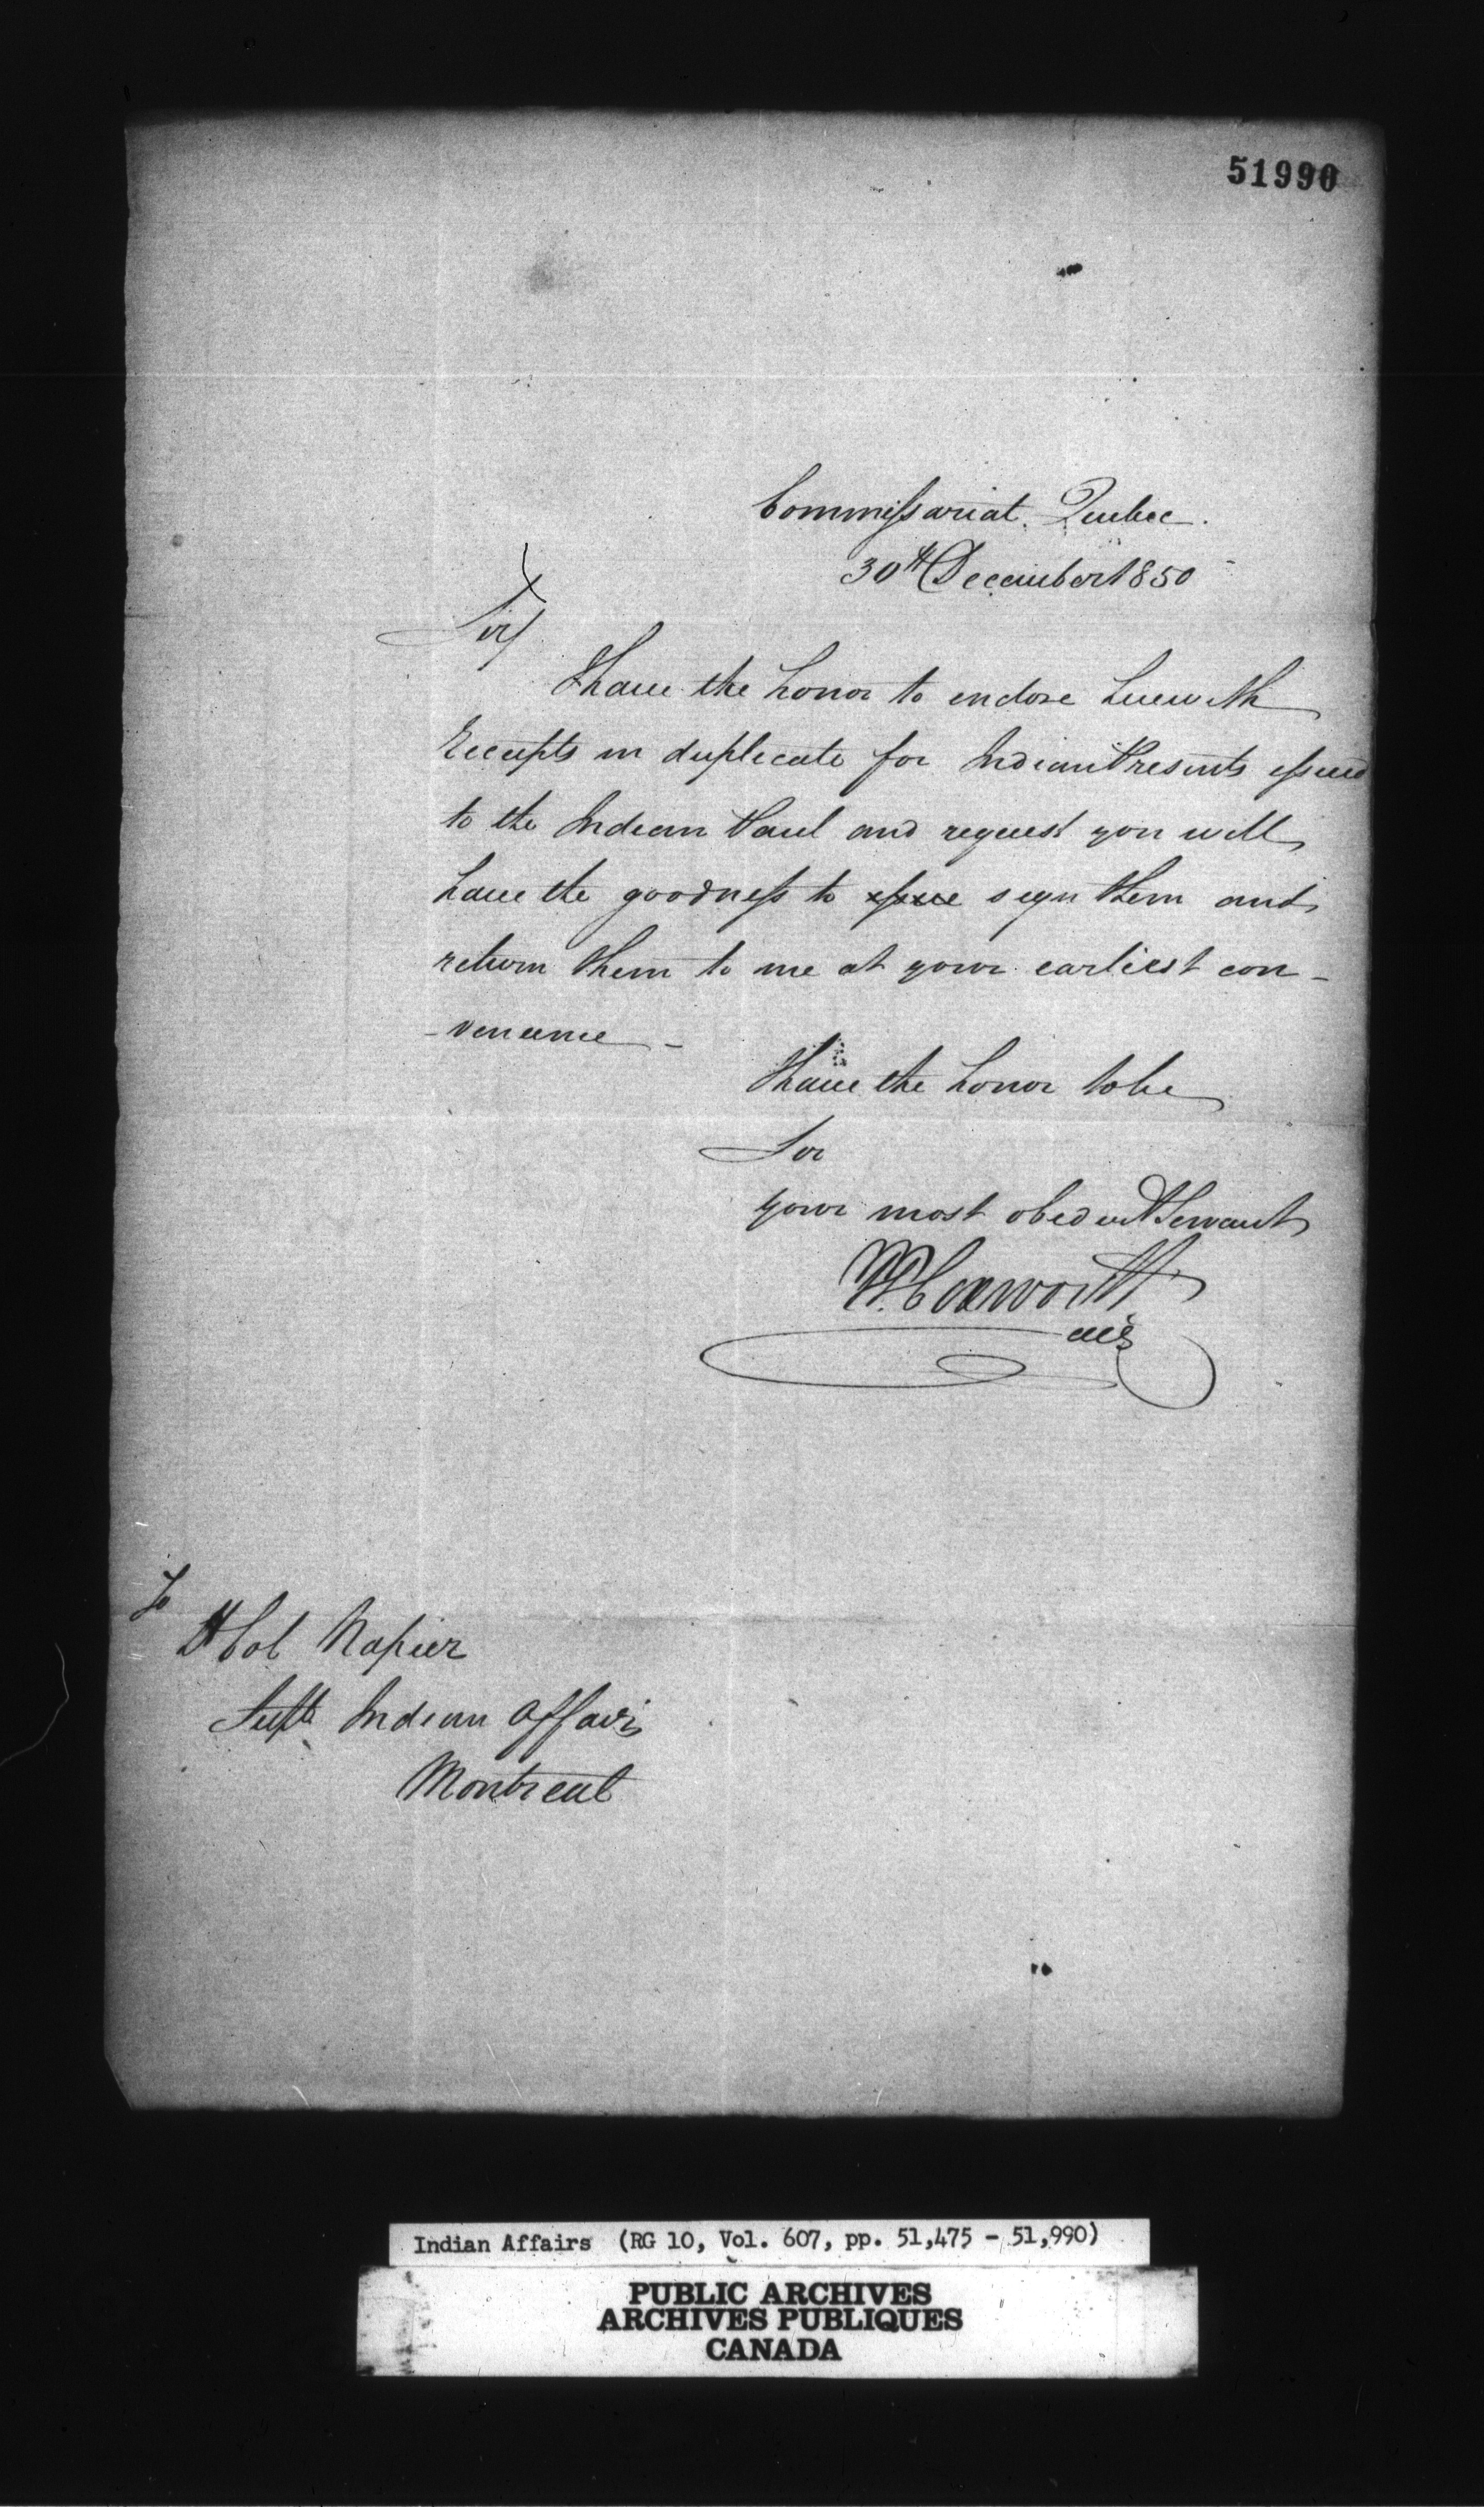 51990
Commissariat Quebec.
30th December 1850
Sir/
I have the honor to enclose herewith
Receipts in duplicate for Indian Presents issued
to the Indian Paul and request you will
have the goodness to issue sign them and
return them to me at your earliest con-
-venience -
I have the honor to be
Sir
your most obedient Servant
To
Lt Col Napier
Supt Indian Affairs
Montreal
Indian Affairs (RG 10, Vol. 607, pp. 51,475 - 51,990)
PUBLIC ARCHIVES
ARCHIVES PUBLIQUES
CANADA